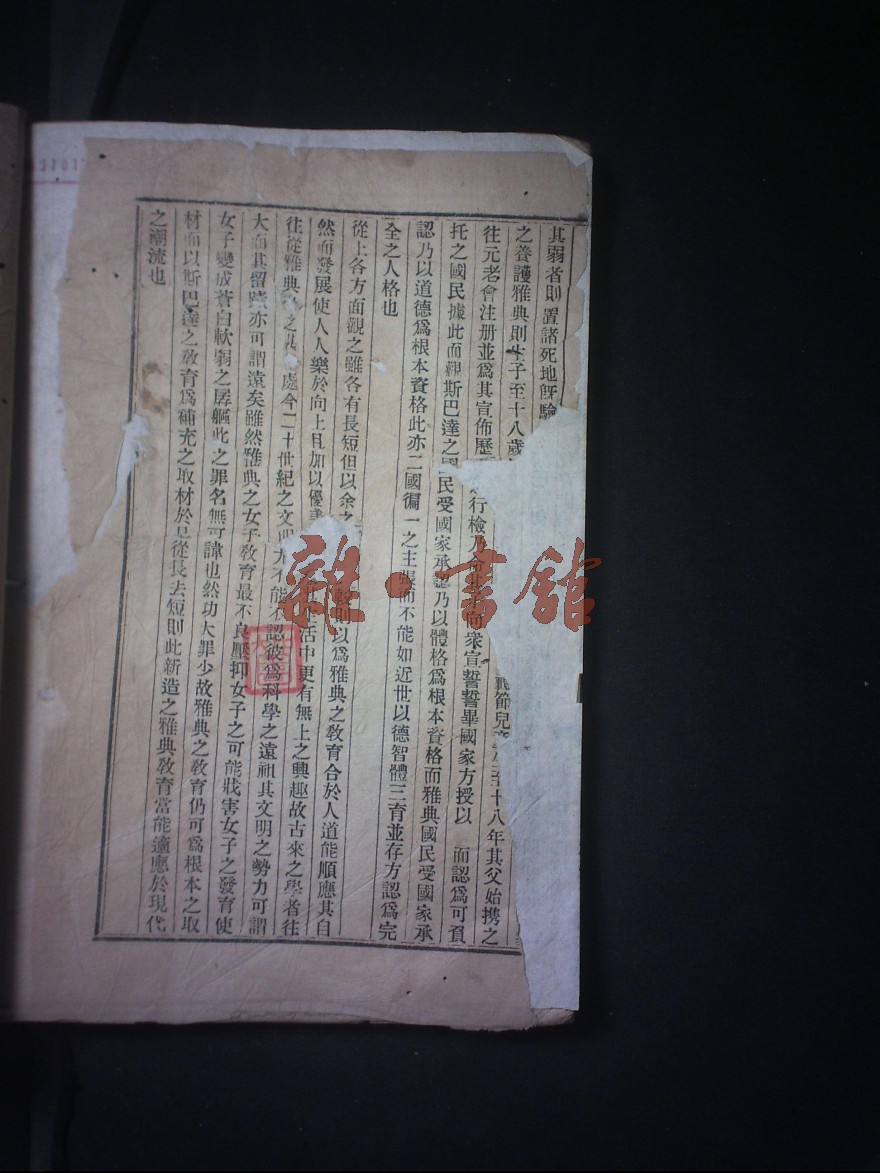 其弱者則置諸死地既驗
之養護雅典則生子至十八歲
往元老會注册並爲其宣佈歷 禮節兒 至十八年其父始携之
托之國民據此而觀斯巴達之國 行檢 向衆宣誓誓畢國家方授以 而認爲可資
認乃以道德爲根本資格此亦二國徧一之主張而不能如近世以德智體三育並存方認爲完
民受國家承認乃以體格爲根本資格而雅典國民受國家承
全之人格也
從上各方面觀之雖各有長短但以余之 較則以爲雅典之敎育合於人道能順應其自
然而發展使人人樂於向上且加以優美 生活中更有無上之興趣故古來之學者往
往從雅典 之 處今二十世紀之文明 不能不認彼爲科學之遠祖其文明之勢力可謂
大而其留蹟亦可謂遠矣雖然雅典之女子敎育最不良壓抑女子之可能戕害女子之發育使
女子變成蒼白軟弱之孱軀此之罪名無可諱也然功大罪少故雅典之敎育仍可爲根本之取
材而以斯巴達之敎育爲補充之取材於是從長去短則此新造之雅典敎育當能適應於現代
之潮流也
雜書館